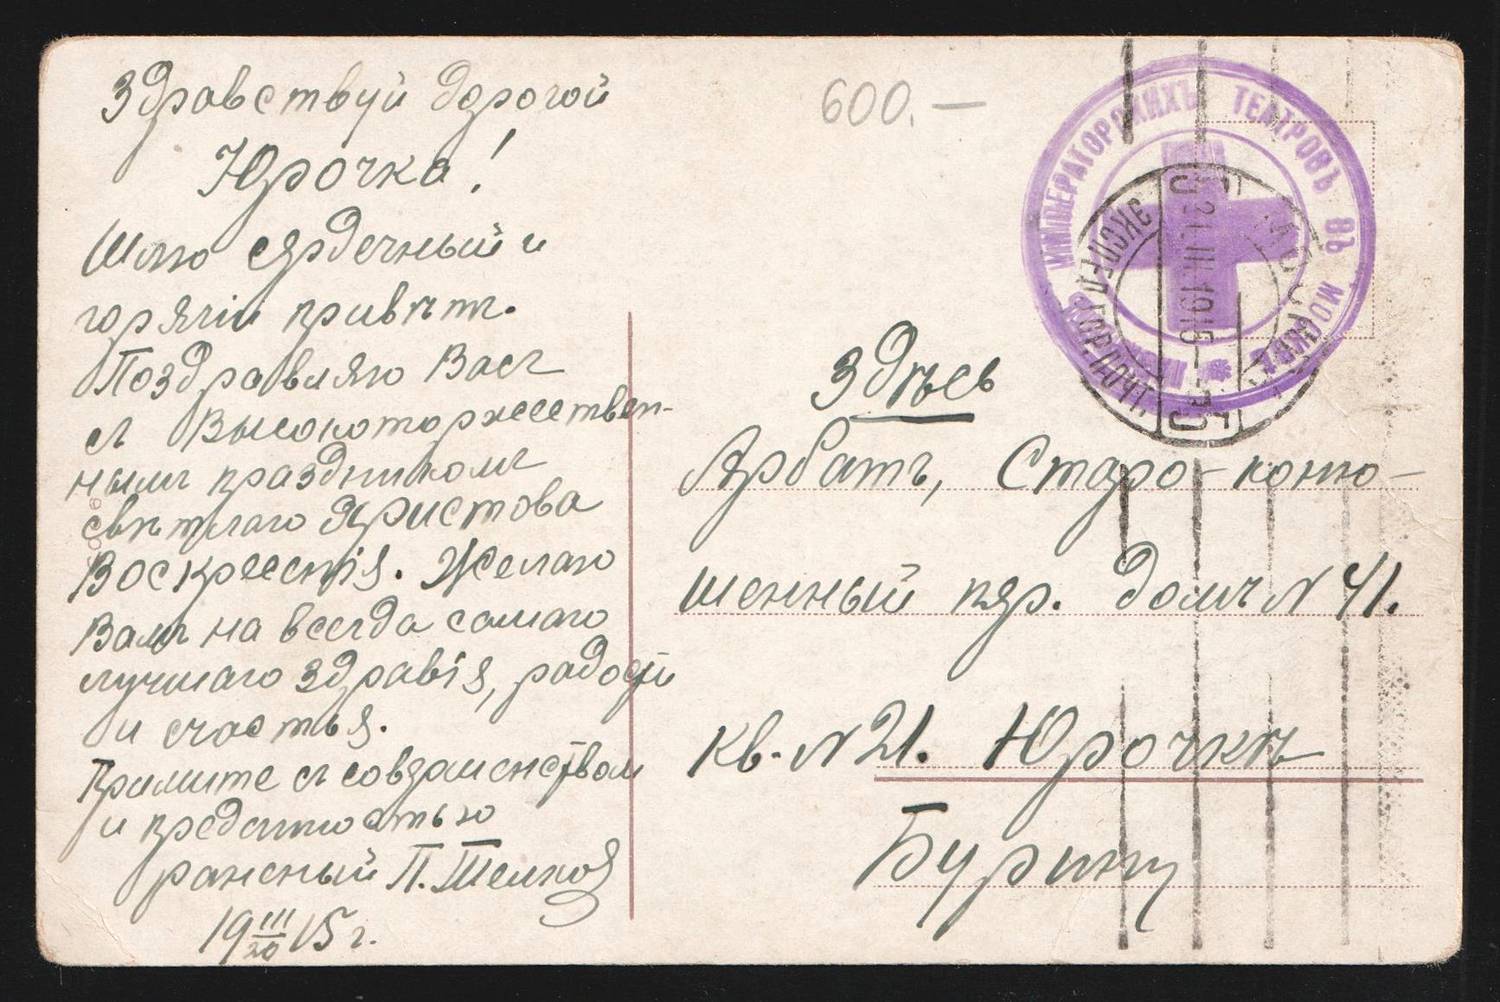 Здравствуй дорогой
Юрочка!
Шлю сярдечный и
горячiй привѣтъ.
Поздравляю Васъ
съ Высокоторжествен-
нымъ праздникомъ
свѣтлаго Христова
Воскресенiя. Желаю
Вамъ на всегда самаго
лучшаго здравiя, радости
и счастья.
Примите съ совершенством
и преданностью
раненый П. Телков
19 III/20 15 г.
600.—
ИМПЕРАТОРСКИХЪ ТЕАТРОВЪ ВЪ МОСКВѢ
МОСКВА
21.III.1915
ЭКСПЕД. ГОР. ПОЧТЫ
Здѣсь
Арбатъ, Старо-коню-
шенный пяр. домъ № 41.
кв. № 21. Юрочкѣ
Бурину